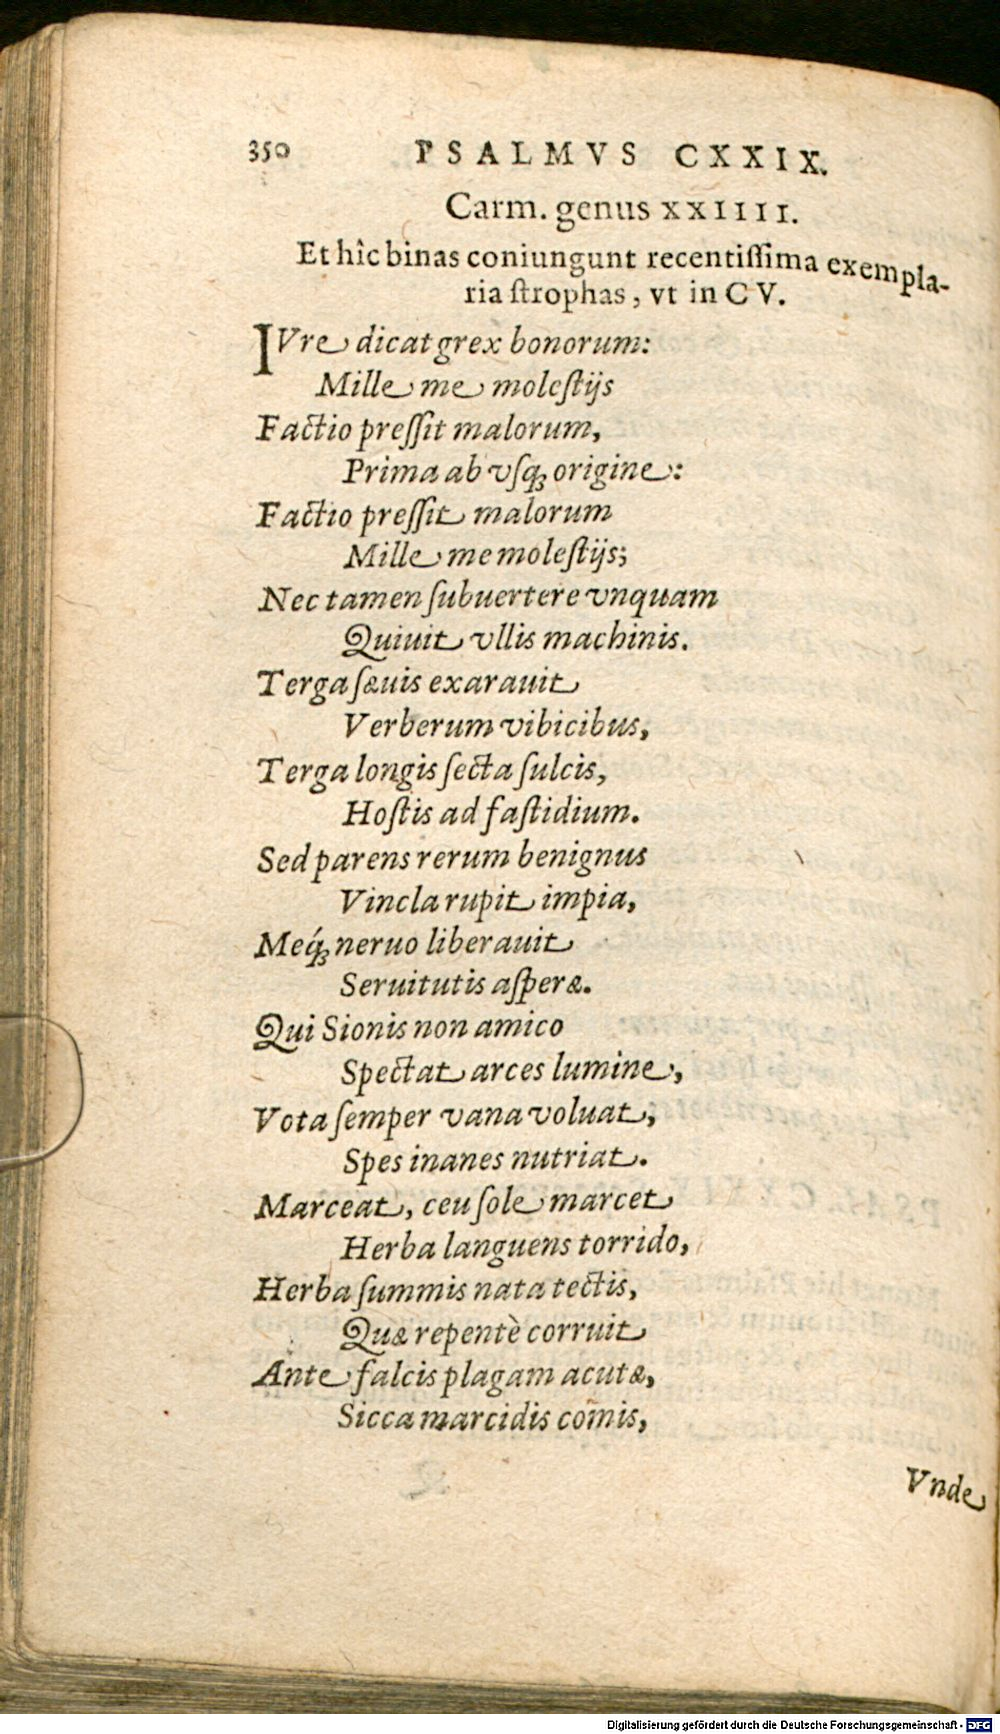 350 PSALMVS CXXIX.
Carm. genus XXIIII.
Et hîc binas coniungunt recentiſſima exempla-
ria ſtrophas, vt in CV.
IVre dicat grex bonorum:
Mille me moleſtijs
Factio preſſit malorum,
Prima ab vſq; origine:
Factio preſſit malorum
Mille me moleſtijs;
Nec tamen ſubuertere vnquam
Quiuit vllis machinis.
Terga ſæuis exarauit
Verberum vibicibus,
Terga longis ſecta ſulcis,
Hoſtis ad faſtidium.
Sed parens rerum benignus
Vincla rupit impia,
Meq́; neruo liberauit
Seruitutis aſperæ.
Qui Sionis non amico
Spectat arces lumine,
Vota ſemper vana voluat,
Spes inanes nutriat.
Marceat, ceu ſole marcet
Herba languens torrido,
Herba ſummis nata tectis,
Quæ repentè corruit
Ante falcis plagam acutæ,
Sicca marcidis comis,
Vnde
Digitalisierung gefördert durch die Deutsche Forschungsgemeinschaft - DFG